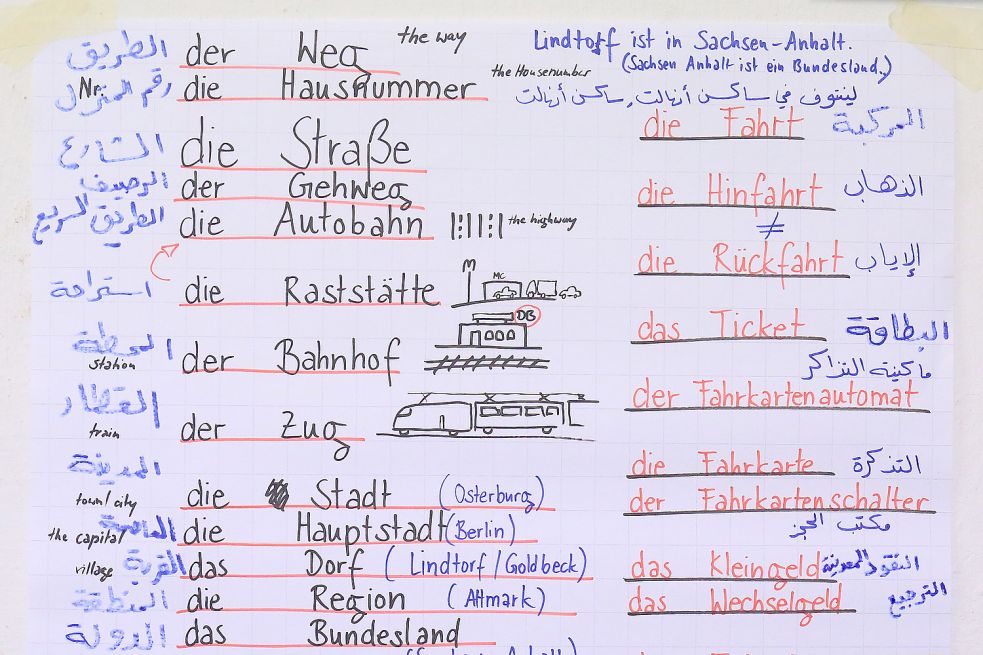 الطريق der Weg the way
رقم المنزل Nr. die Hausnummer the Housenumber
الشارع die Straße
الرصيف der Gehweg
الطريق السريع die Autobahn the highway
استراحة die Raststätte
M
MC
المحطة station der Bahnhof
DB
القطار train der Zug
المدينة town/city die Stadt (Osterburg)
the capital العاصمة die Hauptstadt (Berlin)
village القرية das Dorf (Lindtorf/Goldbeck)
المنطقة die Region (Altmark)
الدولة das Bundesland
Lindtorf ist in Sachsen-Anhalt.
(Sachsen Anhalt ist ein Bundesland.)
لينتوف في ساكسن أنهالت, ساكسن أنهالت
die Fahrt المركبة
die Hinfahrt الذهاب
≠
die Rückfahrt الإياب
das Ticket البطاقة
ماكينة التذاكر
der Fahrkartenautomat
die Fahrkarte التذكرة
der Fahrkartenschalter
مكتب الحجز
das Kleingeld النقود المعدنية
das Wechselgeld الترجيع